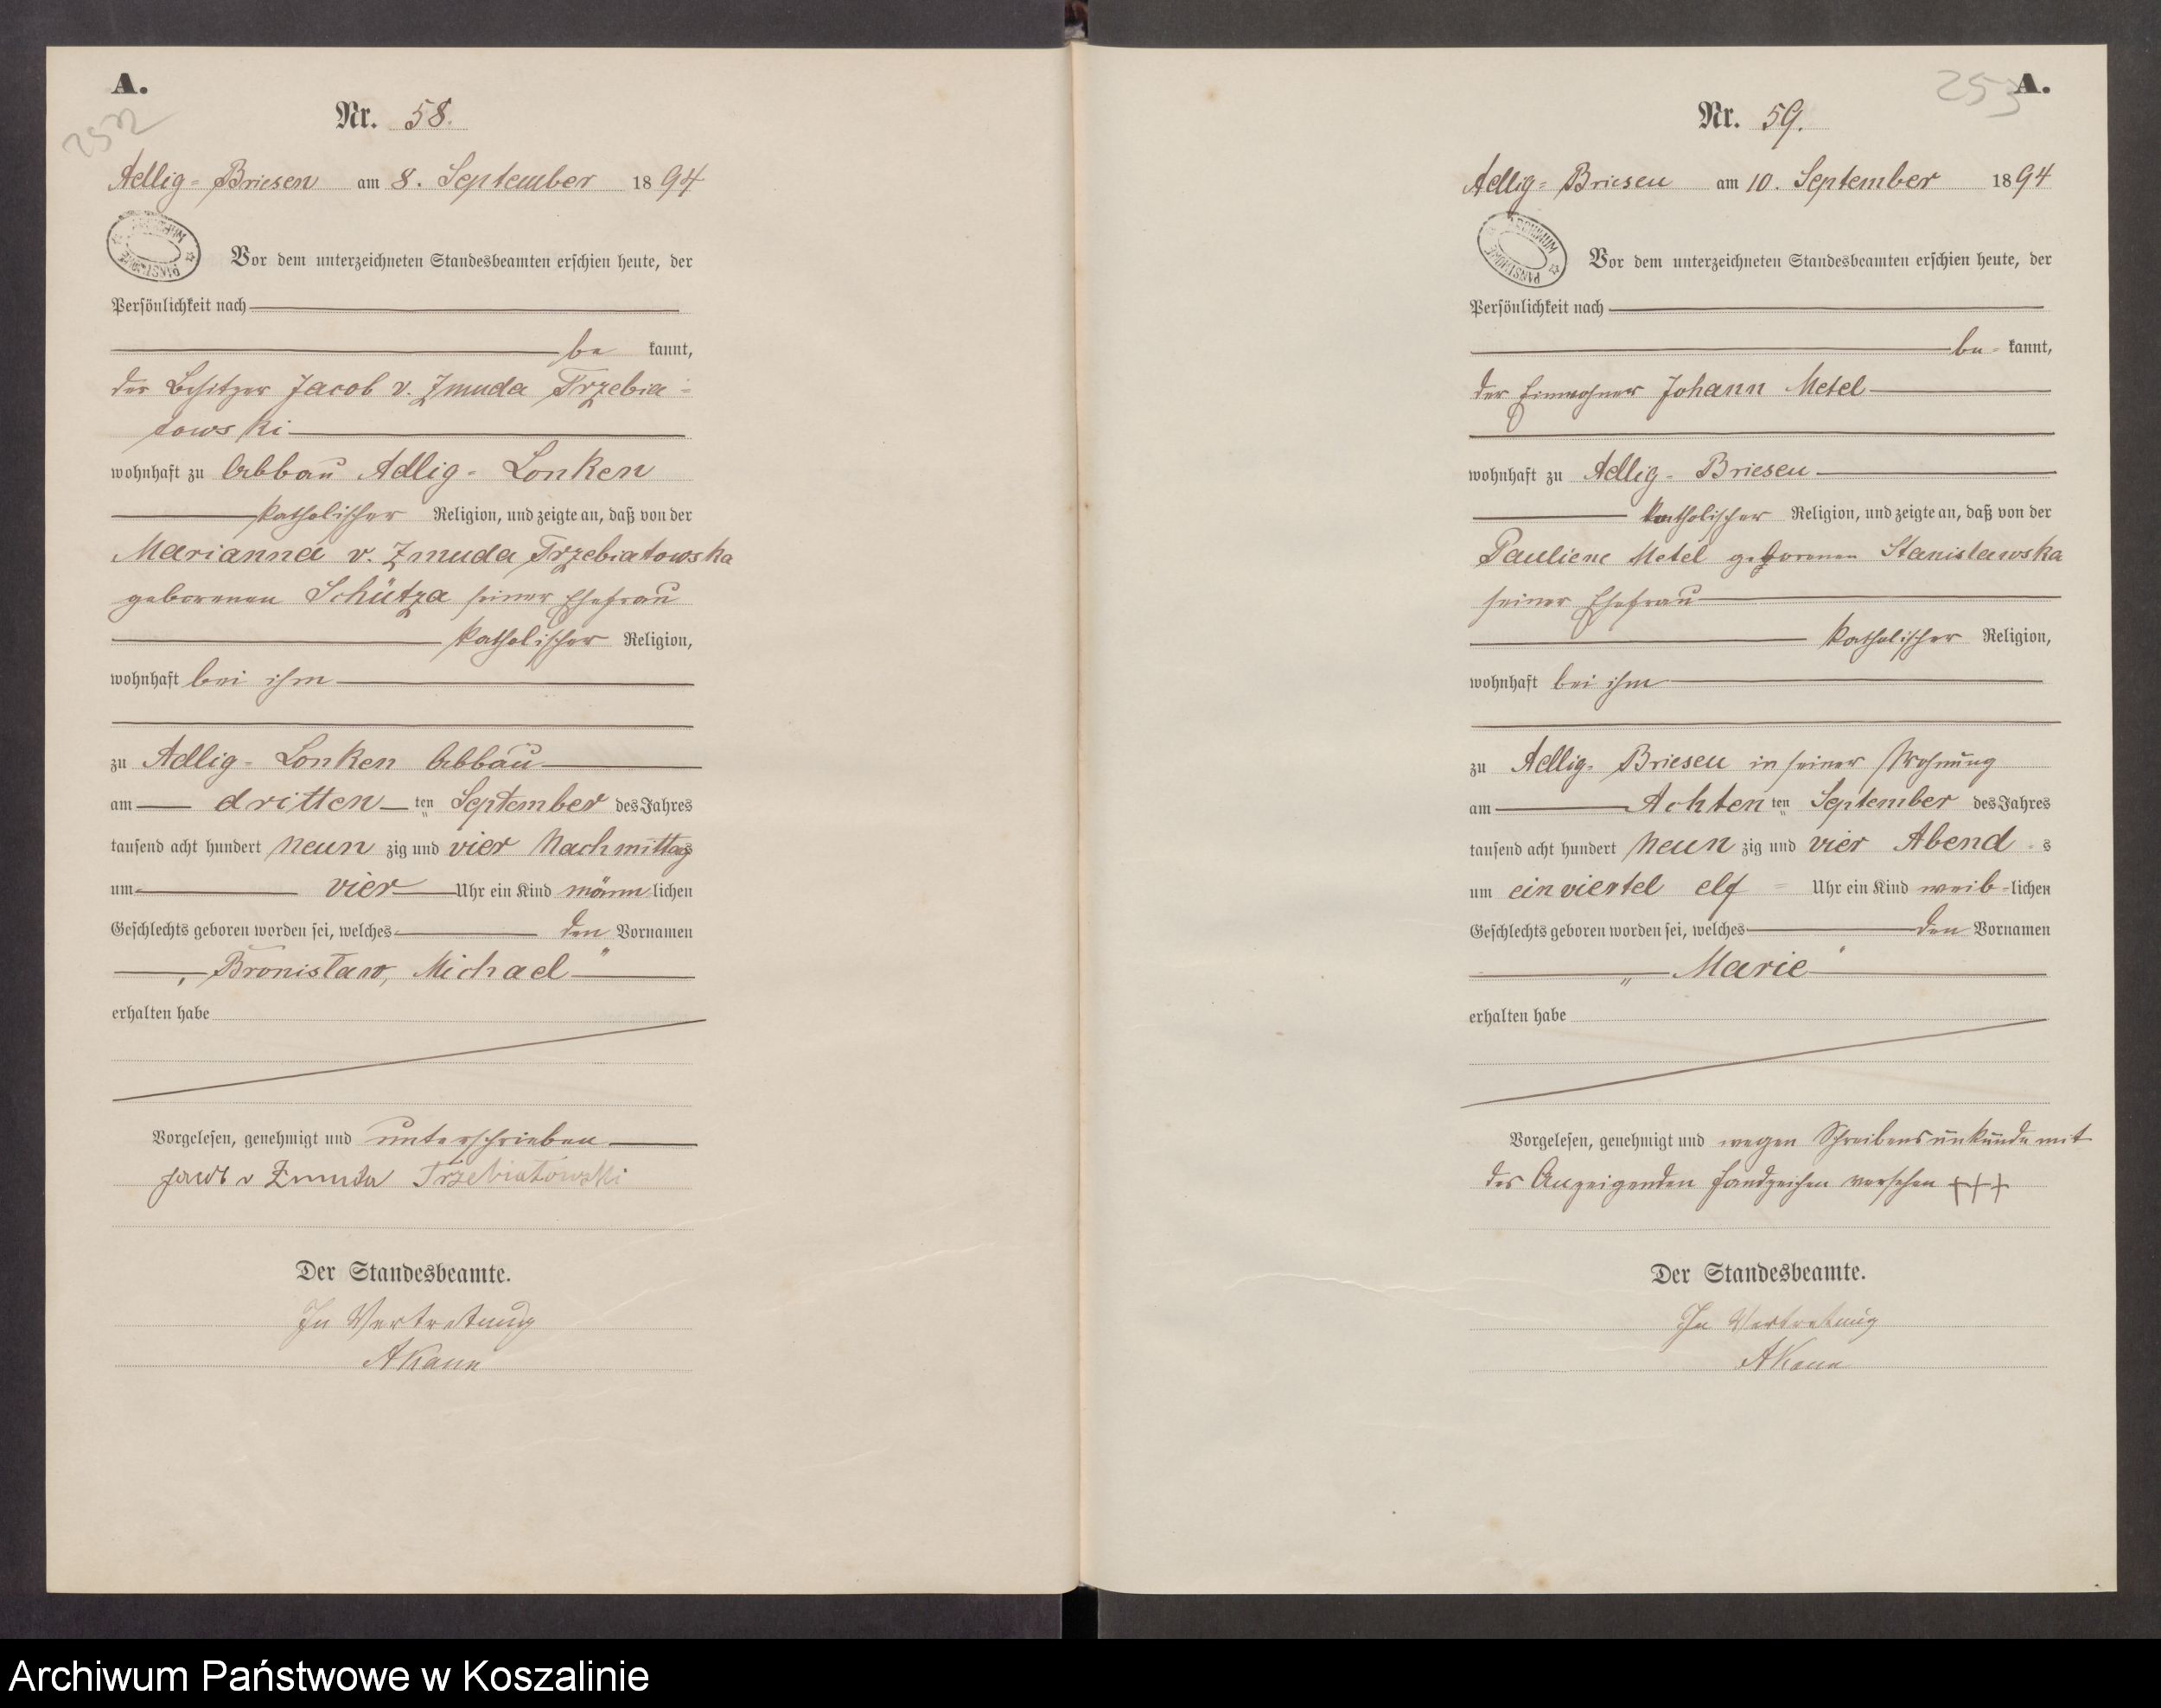 A.
252
Nr. 58.
Adlig-Briesen am 8. September 1894
Vor dem unterzeichneten Standesbeamten erschien heute, der
Persönlichkeit nach
be kannt,
der Besitzer Jacob v. Zmuda Trzebia-
towski
wohnhaft zu Abbau Adlig-Lonken
katholischer Religion, und zeigte an, daß von der
Marianna v. Zmuda Trzebiatowska
geborenen Schütza seiner Ehefrau
katholischer Religion,
wohnhaft bei ihm
zu Adlig-Lonken Abbau
am dritten ten September des Jahres
tausend acht hundert neun zig und vier Nachmittags
um vier Uhr ein Kind männlichen
Geschlechts geboren worden sei, welches den Vornamen
„Bronislaw, Michael"
erhalten habe
Vorgelesen, genehmigt und unterschrieben
Jacob v Zmuda Trzebiatowski
Der Standesbeamte.
In Vertretung
AKann
A.
253
Nr. 59.
Adlig-Briesen am 10. September 1894
Vor dem unterzeichneten Standesbeamten erschien heute, der
Persönlichkeit nach
be- kannt,
der Einwohner Johann Metel
wohnhaft zu Adlig-Briesen
katholischer Religion, und zeigte an, daß von der
Pauliene Metel geborenen Stanislawska
seiner Ehefrau
katholischer Religion,
wohnhaft bei ihm
zu Adlig-Briesen in seiner Wohnung
am Achten ten September des Jahres
tausend acht hundert neun zig und vier Abend s
um einviertel elf Uhr ein Kind weib-lichen
Geschlechts geboren worden sei, welches den Vornamen
„Marie"
erhalten habe
Vorgelesen, genehmigt und wegen Schreibensunkunde mit
des Anzeigenden Handzeichen versehen +++
Der Standesbeamte.
In Vertretung
AKann
Archiwum Państwowe w Koszalinie